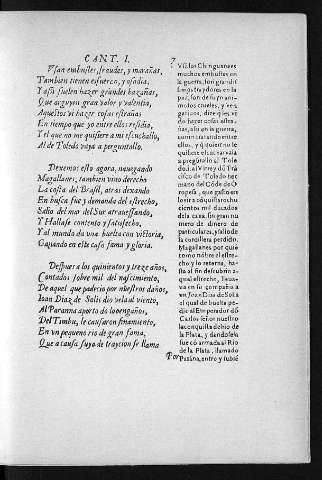 CANT. I.
7
Vsan embustes, fraudes, y marañas,
Tambien tienen esfuerço, y osadia,
Y assi suelen hazer grandes hazañas,
Que arguyen gran valor y valentia,
Aquestos vi hazer cosas estrañas
En tiempo que yo entre ellos residia,
Y el que no me quisiere a mi escuchallo,
Al de Toledo vaya a preguntallo.
Dexemos esto agora, nauegando
Magallanes, tambien vino derecho
La costa del Brasil, atras dexando
En busca fue y demanda del estrecho,
Salio del mar del Sur atrauessando,
Y Hallase contento y satisfecho,
Y al mundo da vna buelta con victoria,
Ganando en este caso fama y gloria.
Despues a los quinientos y treze años,
Contados sobre mil del nascimiento,
De aquel que padecio por nuestros daños,
Ioan Diaz de Solis dio vela al viento,
Al Paranna aporto do los engaños,
Del Timbu, le causaron finamiento,
En vn pequeno rio de gran fama,
Que a causa suya de traycion se llama
Vsã los Chiriguanaes
muchos embustes en
la guerra, son grandes
impostradores en la
paz, son de su
animosos crueles, y
dize que vi
do hazer cosas
ñas, assi en la guerra,
como tratando entre
ellos, y q quien no le
quisiere escuchar vaya
a pregũtallo al
do, al Virrey dõ Frã
cisco de Toledo her
mano del Cõde de O
ropesa, que gasto en
los mil ducados
dela caxa, sin gran nu
mero de dinero de
particulares, y salio de
la cordillera perdido.
Magallanes por quie
tomo nõbre el estre-
cho y lo reterna, has-
ta al fin descubrio a-
quel estrecho,
ua en su compañia a
vn Joan Diaz de Solis
al qual de buelta pe-
dir al Emperador dõ
Carlos señor nuestro
la conquista del rio de
la Plata, y dandosela
fue cõ armada al Rio
de la Plata, llamado
Parana, entro y subio
Por